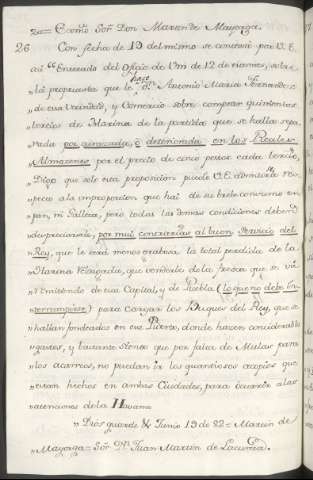 za= Exmo Sor Don Martin de Mayorga.
26 Con fecha de 19 del mismo se contextó por S. E.
así "Enterado del Oficio de Vm de 12 de viernes, sobre
"la propuesta que le hace Dn Antonio María Fernandez
"de esta Vecindad, y Comercio sobre comprar quinientos
"tercios de Harina de la partida que se halla sepa
"rada por atrazada, ó deteriorada en los Reales
"Almazenes por el precio de cinco pesos cada tercio,
"Digo que sólo esta proposicion puede V. E. admitir res-
"pecto a la imposicion que hai de su breve consumo en
"pan, ni Galleta, pero todas las demas condiciones deben
"despreciarse, por mui contrarias al buen Servicio del
"Rey, que le será menos gravosa la total perdida de la
"Harina rezagada, que venderla de la fresca que se vá
"remitiendo de esta Capital, y de Puebla (lo que no debe in-
"terrumpirse) para cargar los Buques del Rey, que se
"hallan fondeados en ese Puerto, donde hazen considerable
"gastos, y bastante siento que por falta de Mulas para
"los acarreos, no puedan ir los quantiosos acopios que
"estan hechos en ambas Ciudades, para ocurrir á las
"atenciones de la Havana
"Dios guarde &a Junio 19 de 82 = Martin de
"Mayorga = Sor Dn Juan Martin de